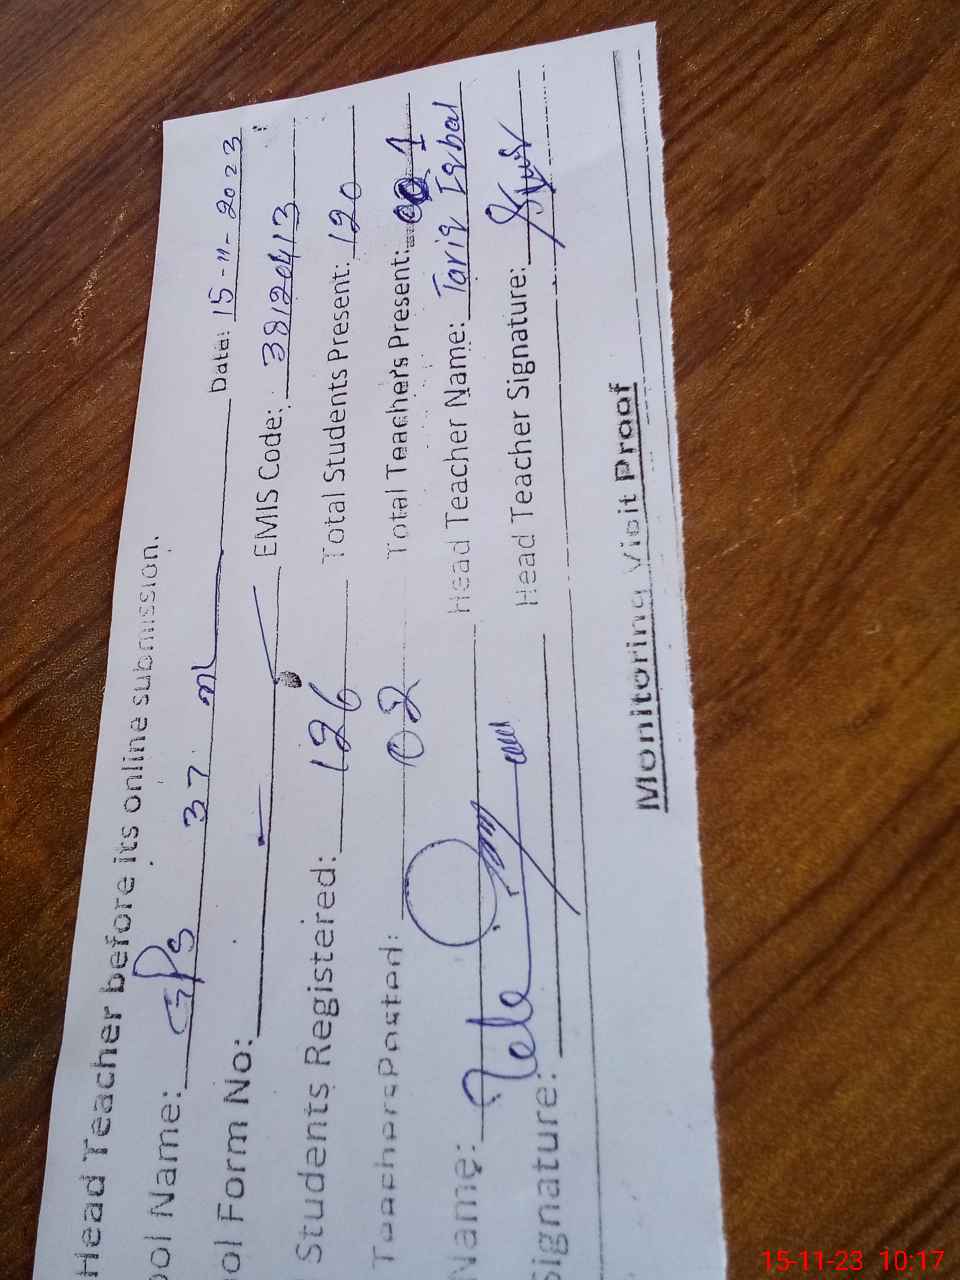 Head Teacher before its online submission.
ool Name: GPS 37 ml Date: 15-11-2023
ool Form No: EMIS Code: 38120413
Students Registered: 126 Total Students Present: 120
Teachers Posted: 02 Total Teachers Present: 1
Name: Head Teacher Name: Tariq Iqbal
Signature: Head Teacher Signature:
Monitoring Visit Proof
15-11-23 10:17